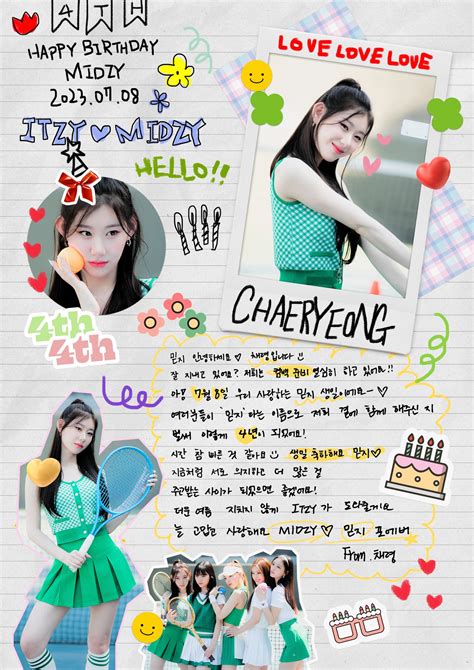 4TH
HAPPY BIRTHDAY
MIDZY
2023.07.08
ITZY ♡ MIDZY
HELLO!!
LOVE LOVE LOVE
CHAERYEONG
4th
4th
믿지 안녕하세요 ♡ 채령입니다
잘 지내고 있어요? 저희는 컴백 준비 열심히 하고 있어요!!
아! 7월 8일 우리 사랑하는 믿지 생일이에요~♡
여러분들이 '믿지'라는 이름으로 저희 곁에 함께 해주신 지
벌써 이렇게 4년이 되었어요!
시간 참 빠른 것 같아요 생일 축하해요 믿지♡
지금처럼 서로 의지하고 더 많은 걸
주고받는 사이가 되었으면 좋겠어요!
더운 여름 지치지 않게 ITZY가 도와줄게요
늘 고맙고 사랑해요 MIDZY♡ 믿지 포에버
From. 채령